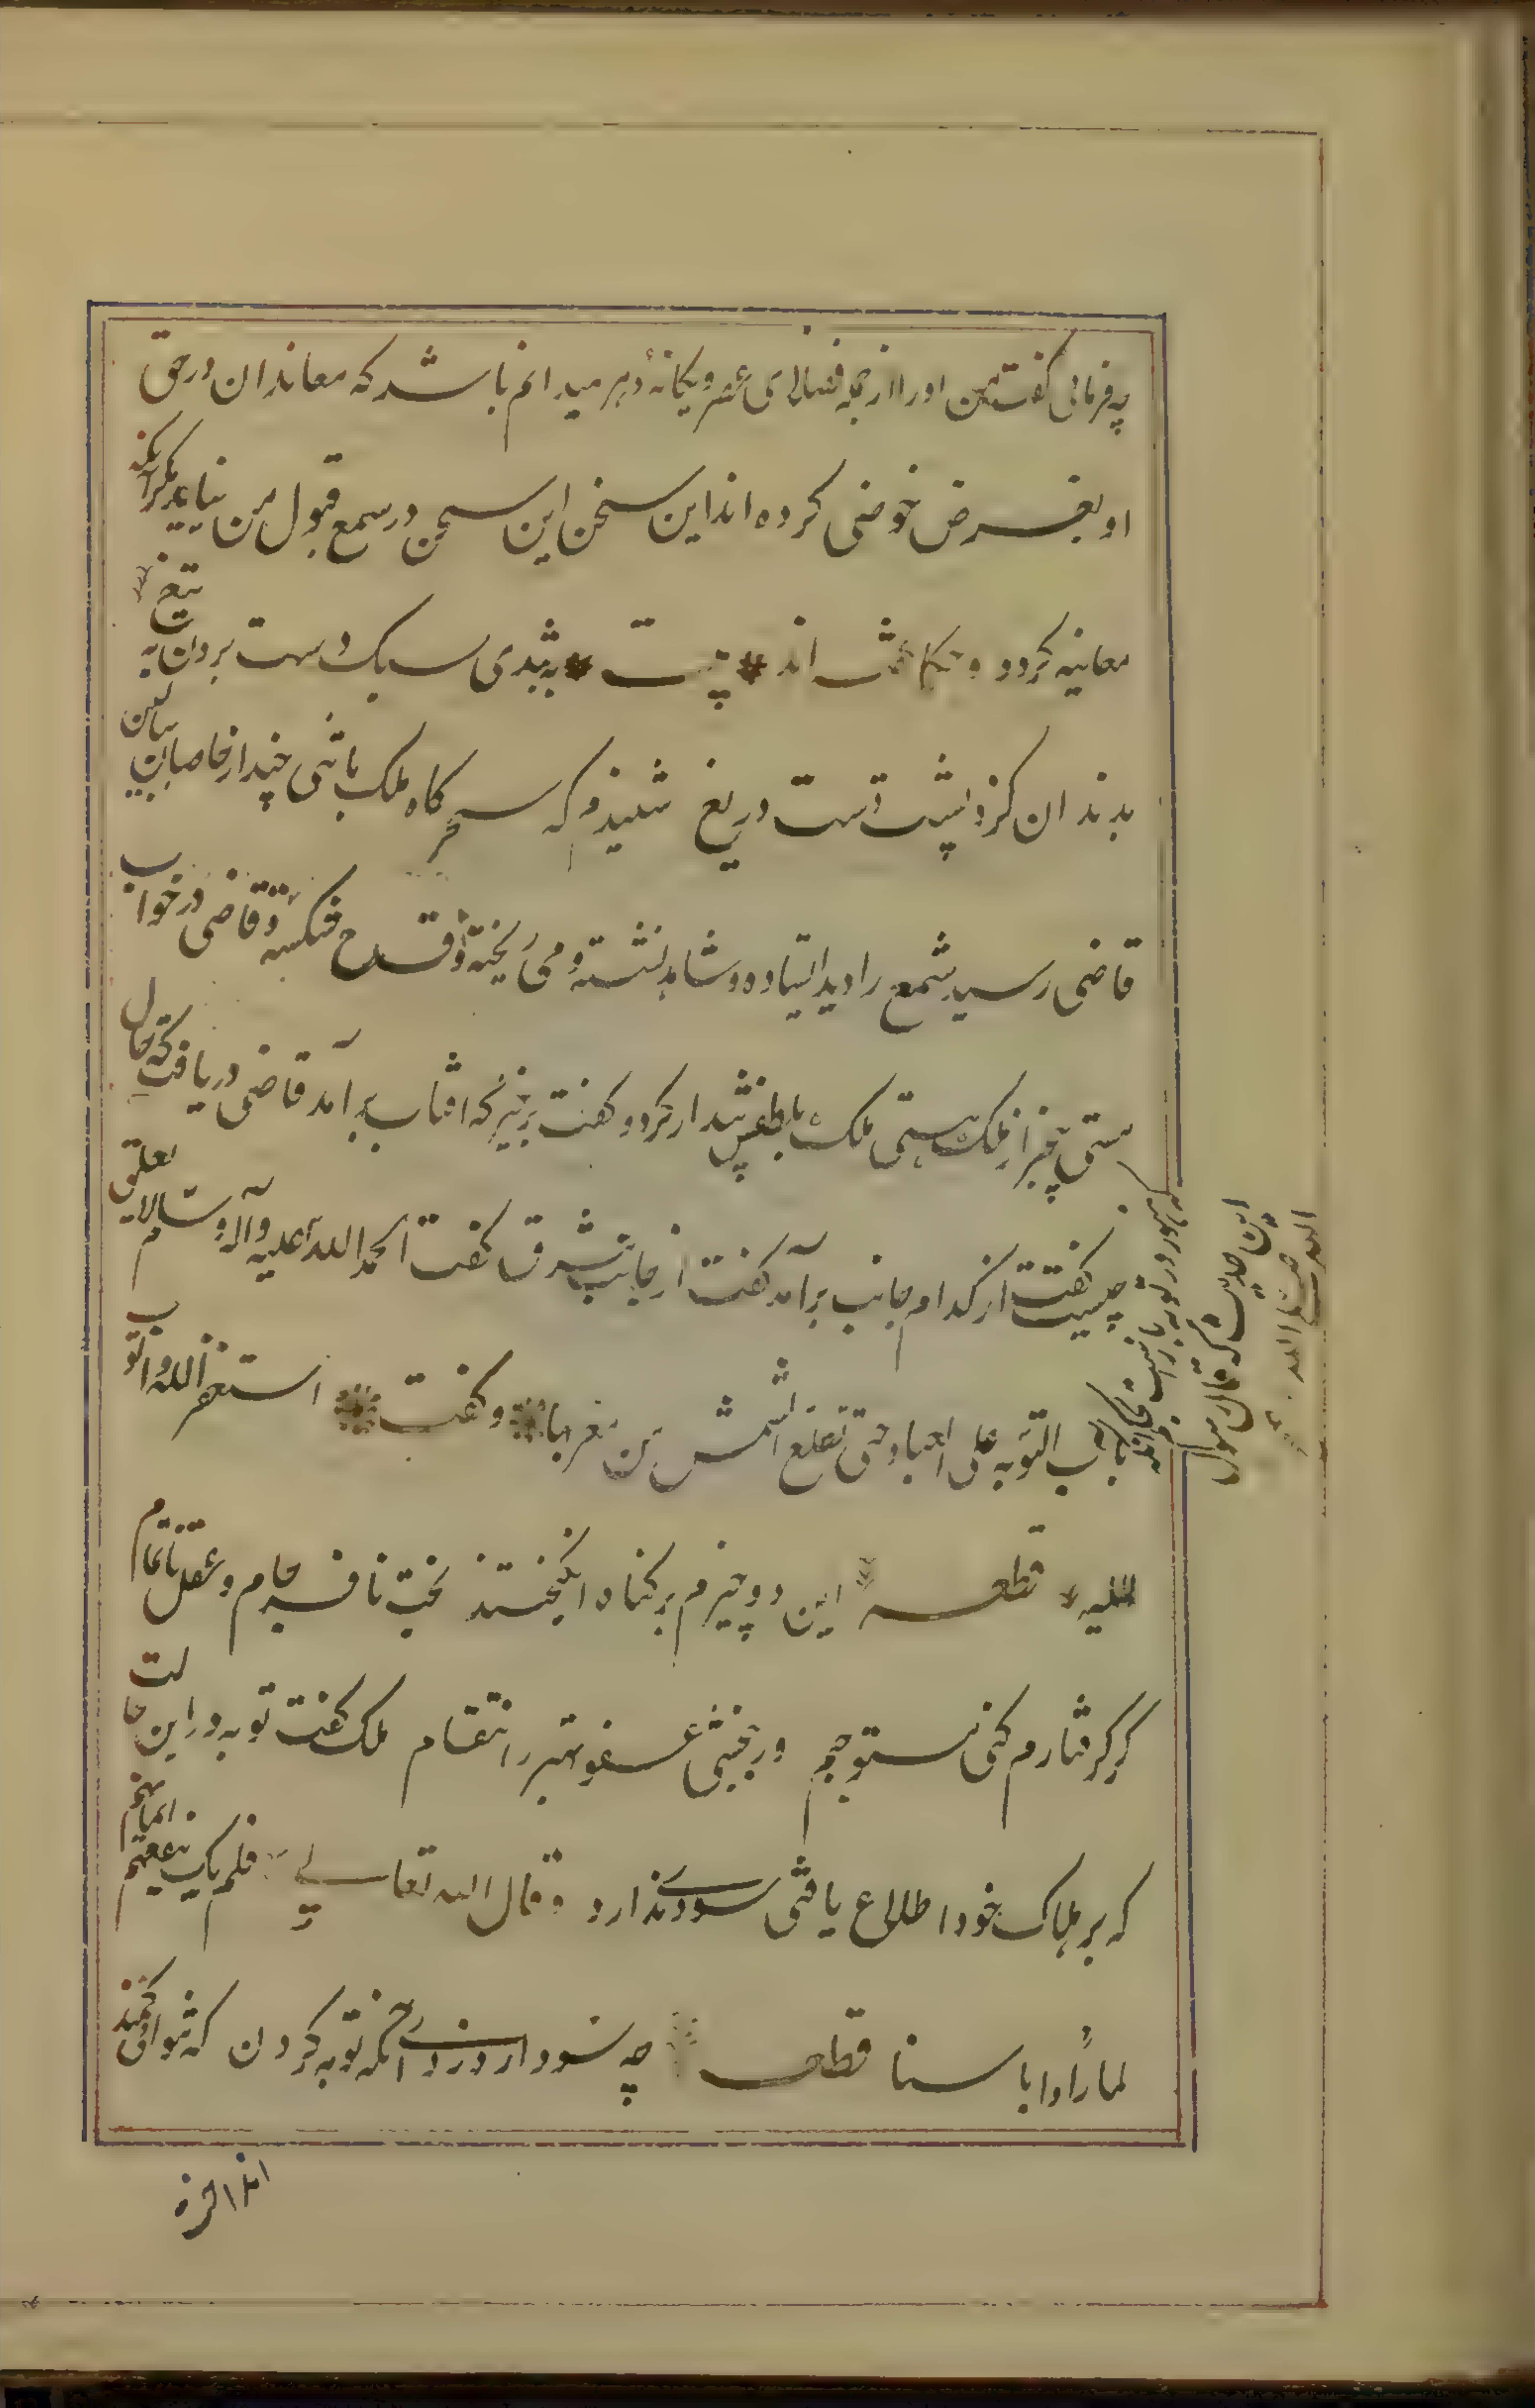 چه فرمائی گفت من اورا از جمله فضلای عصر و یکانهٔ دهر میدانم باشد که معاندان در حق
او بغرض خوضی کرده اند این سخن این سخن در سمع قبول من نیاید مگر انکه
معاینه کردد و حکما گفته اند بیت به تندی سبک دست بردن به تیغ
بدندان کزد پشت دست دریغ شنیدم که سحرگاه ملک با تنی چند از خاصان ببالین
قاضی رسید شمع را دید ایستاده و شاهد نشسته و می ریخته و قدح شکسته و قاضی در خواب
مستی بیخبر از ملک هستی ملک بلطفش بیدار کرد و گفت برخیز که افتاب برآمد قاضی دریافت که حال
چیست گفت از کدام جانب برآمد گفت از جانب مشرق گفت الحمد الله علیه وآله وسلم لا یغلق
باب التوبه علی العباد حتی تطلع الشمس من مغربها وگفت استغفر الله و اتوب
الیه قطعه این دو چیزم بر کناه انکیختند بخت نافرجام و عقل ناتمام
گر گرفتارم کنی مستوجبم ور ببخشی عفو بهتر از انتقام ملک گفت توبه در این حالت
که بر هلاک خود اطلاع یافتی سودی ندارد و قال الله تعالی فلم یک ینفعهم ایمانهم
لما راوا باسنا قطعه چه سود از دزدی آنکه توبه کردن که نتوانی کمند
انداخت
که هنوز در توبه باز است بحکم آنکه
این حدیث که قال رسول
الله صلی الله